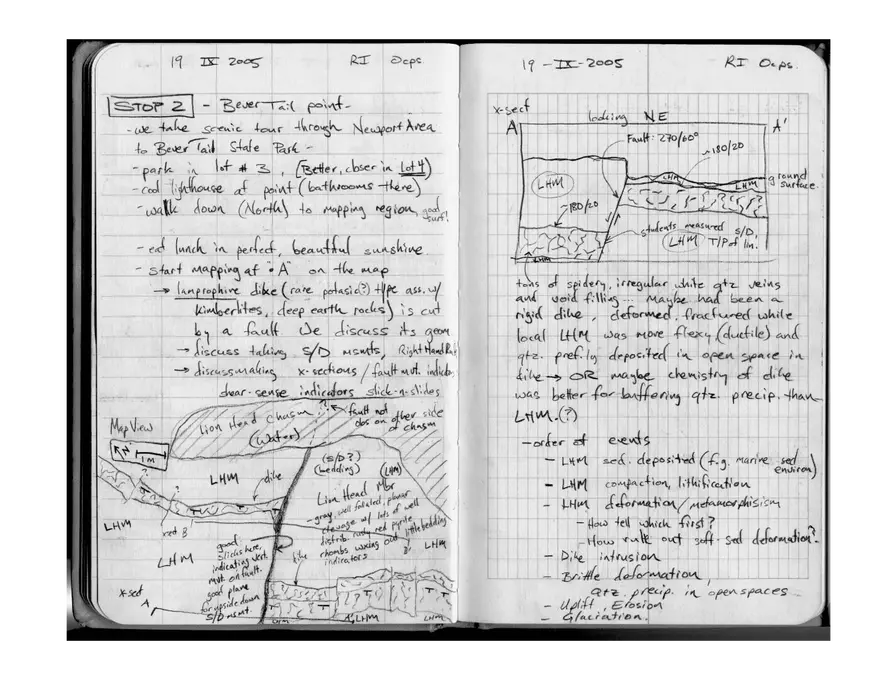 19 IX 2005 RI Ocps.
STOP 2 - Bever Tail point-
- we take scenic tour through Newport Area
to Bever Tail State Park -
- park in lot # 3, (Better, closer in Lot 4)
- cool lighthouse at point (bathrooms there)
- walk down (North) to mapping region, good surf!
- eat lunch in perfect, beautiful sunshine
- start mapping at "• A" on the map
→ lamprophire dike (rare potasic?) type ass. w/
kimberlites, deep earth rocks) is cut
by a fault. We discuss its geom
→ discuss taking S/D msmts, Right Hand Rule
→ discuss making x-sections / fault mvt. indicators
shear-sense indicators slick-n-slides
Map View
N
1 m
Lion Head Chasm
(Water)
?
fault not
obs on other side
of chasm
LHM
dike
(S/D?)
(bedding)
(LHM)
Lion Head Mbr
- gray, well foliated, planar
cleavage w/ lots of well
distrib. rusty red pyrite
rhombs
little bedding
indicators
LHM
xsect B
B'
LHM
LHM
good
slicks here,
indicating vert.
mvt on fault.
good plane
for upside down
S/D msmt.
dike
x-sect
A
A'
LHM
LHM
LHM
19-IX-2005 RI Ocps.
x-sect
A looking NE A'
Fault: 270/60°
~180/20
LHM
LHM
LHM
ground
surface
~180/20
students measured S/D,
LHM T/P of lin.
LHM
tons of spidery, irregular white qtz veins
and void filling... Maybe had been a
rigid dike, deformed, fractured while
local LHM was more flexy (ductile) and
qtz. prefily deposited in open space in
dike → OR maybe chemistry of dike
was better for buffering qtz. precip. than
LHM. (?)
- order of events
- LHM sed. deposited (f.g. marine sed environ)
- LHM compaction, lithification
- LHM deformation/metamorphisism
- How tell which first?
- How rule out soft-sed deformation?
- Dike intrusion
- Brittle deformation,
qtz. precip. in open spaces
- Uplift, Erosion
- Glaciation.